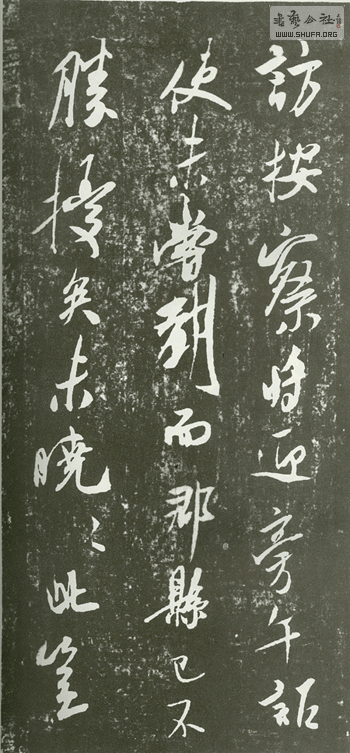 書藝公社
WWW.SHUFA.ORG
訪按察將迎旁午
使未嘗到而郡縣已不
勝擾矣未曉〻此豈